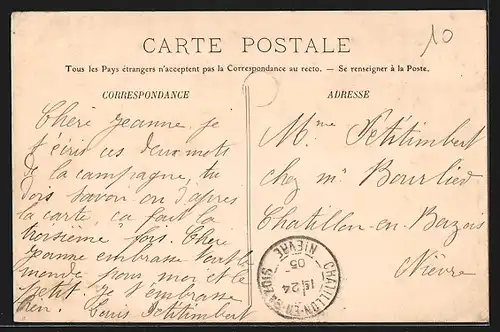 10
CARTE POSTALE
Tous les Pays étrangers n'acceptent pas la Correspondance au recto. — Se renseigner à la Poste.
CORRESPONDANCE
Chère Jeanne je
t'écris ces deux mots
de la campagne, tu
dois savoir où d'après
la carte, ça fait la
troisième fois. Chère
Jeanne embrasse tout le
monde pour moi et le
petit je t'embrasse
bien. Louis Petitimbert
ADRESSE
Mme Petitimbert
chez Mr Bourlier
Chatillon-en-Bazois
Nièvre
CHATILLON-EN-BAZOIS
NIEVRE
24
05